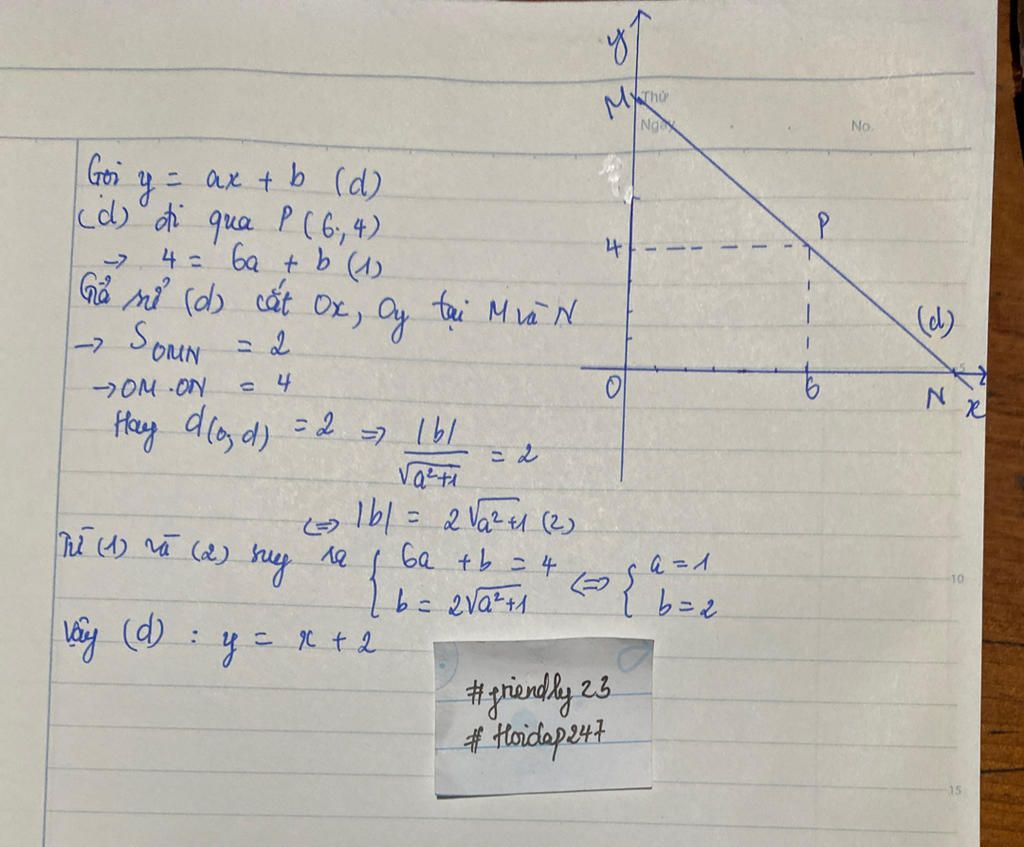 y
M
Thứ
Ngày
No.
Gọi y = ax + b (d)
(d) đi qua P (6, 4)
→ 4 = 6a + b (1)
Giả sử (d) cắt Ox, Oy tại M và N
→ S OMN = 2
→ OM . ON = 4
Hay d(o, d) = 2 => |b| / √(a²+1) = 2
<=> |b| = 2√(a²+1) (2)
Từ (1) và (2) suy ra { 6a + b = 4 <=> { a = 1
b = 2√(a²+1) b = 2
Vậy (d) : y = x + 2
P
4
(d)
O
6
N
x
5
10
15
#friendly23
# Hoidap247